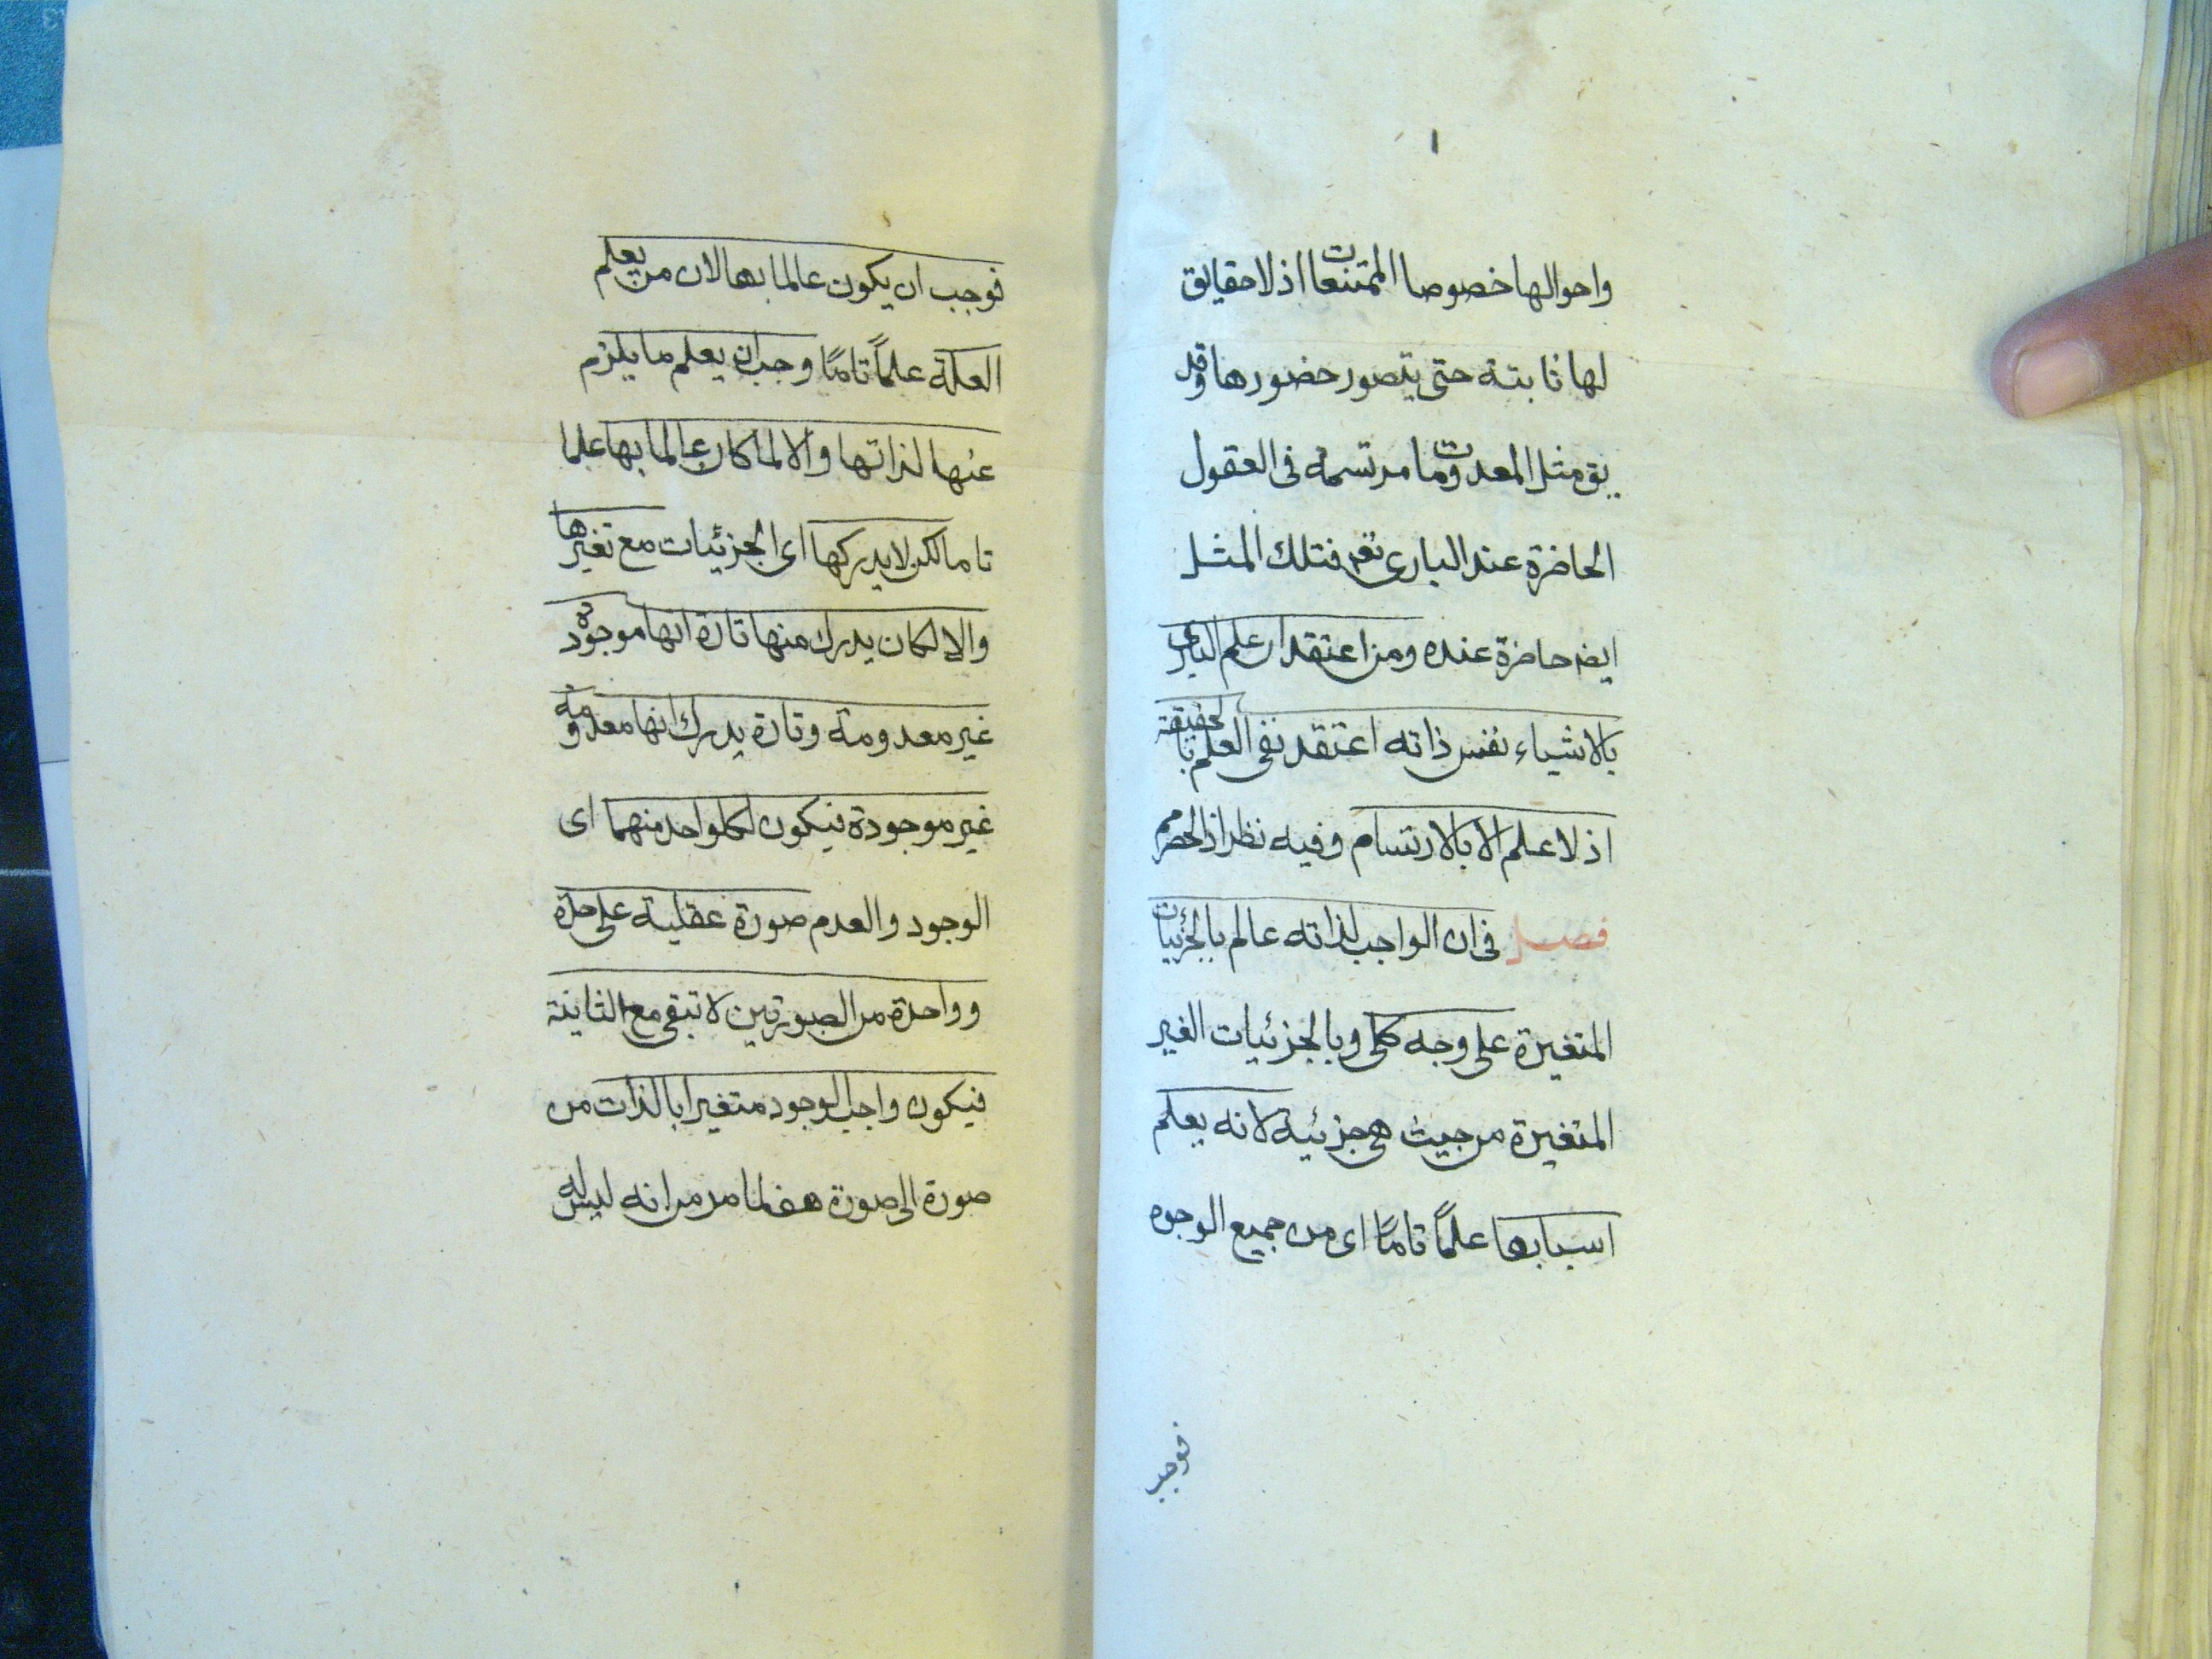 واحوالها خصوصا الممتنعات اذ لا حقايق
لها ثابتة حتى يتصور حضورها وقد
يق مثل المعدومات مرتسمة فى العقول
الحاضرة عند البارى تعم فتلك المثل
ايضه حاضرة عنده ومن اعتقد ان علم البارى
بالاشياء نفس ذاته اعتقد نفى العلم بالحقيقة
اذ لا علم الا بالارتسام وفيه نظر اذ الحصر مم
فصل فى ان الواجب لذاته عالم بالجزئيات
المتغيرة على وجه كلى وبالجزئيات الغير
المتغيرة من حيث هى جزئية لانه يعلم
اسبابها علمًا تامًا اى من جميع الوجوه
فوجب
فوجب ان يكون عالما بها لان من يعلم
العلة علمًا تامًا وجب ان يعلم ما يلزم
عنها لذاتها والا لما كان عالما بها علما
تاما لكن لا يدركها اى الجزئيات مع تغيرها
والا لكان يدرك منها تارة انها موجودة
غير معدومة وتارة يدرك انها معدومة
غير موجودة فيكون لكل واحد منهما اى
الوجود والعدم صورة عقلية على حدة
وواحدة من الصورتين لا تبقى مع الثانية
فيكون واجب الوجود متغيرا بالذات من
صورة الى صورة هف لما مر من انه ليس له